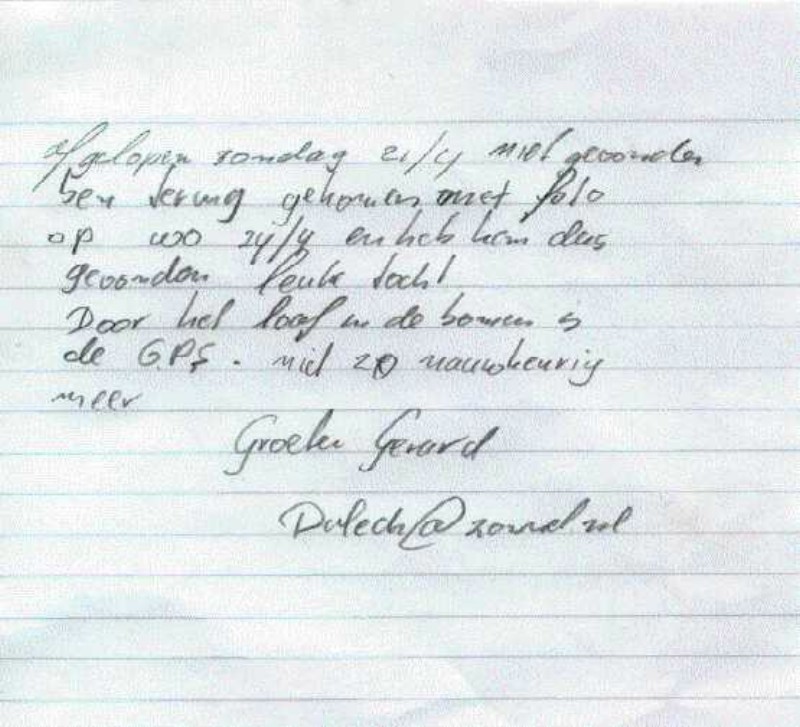 Afgelopen zondag 21/4 niet gevonden
ben terug gekomen met foto
op wo 24/4 en heb hem dus
gevonden leuke tocht
Door het loof in de bomen is
de G.P.S. niet zo nauwkeurig
meer
Groeten Gerard